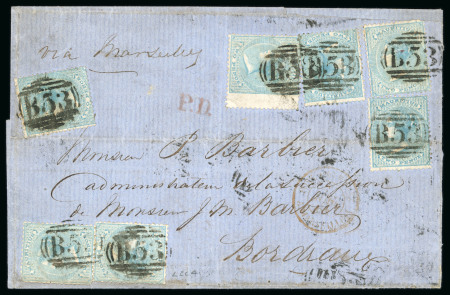 via Marseilles
B.53 B.53 B.53
B.53
P.D.
B.53
Monsieur P. Barbier
administrateur de la succession
de Monsieur J. M. Barbier
Bordeaux
B.53 B.53